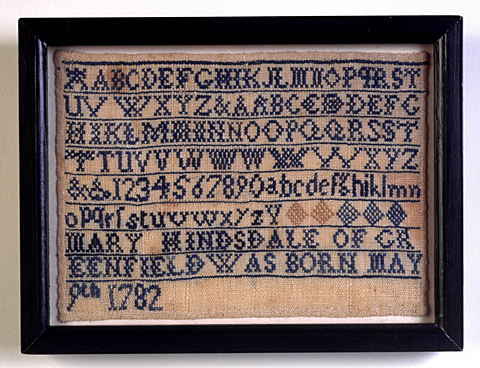 ABCDEFGHIKJLMNOPQRST
UVWXYZ&AABCDEFG
HIKLMNNOOPQQRSST
TTUVVUWWXYXYZ
& 1234567890abcdefshiklmn
opqrſstuvvwxyzY
MARY HINDSDALE OF GR
EENFIELD WAS BORN MAY
9th 1782